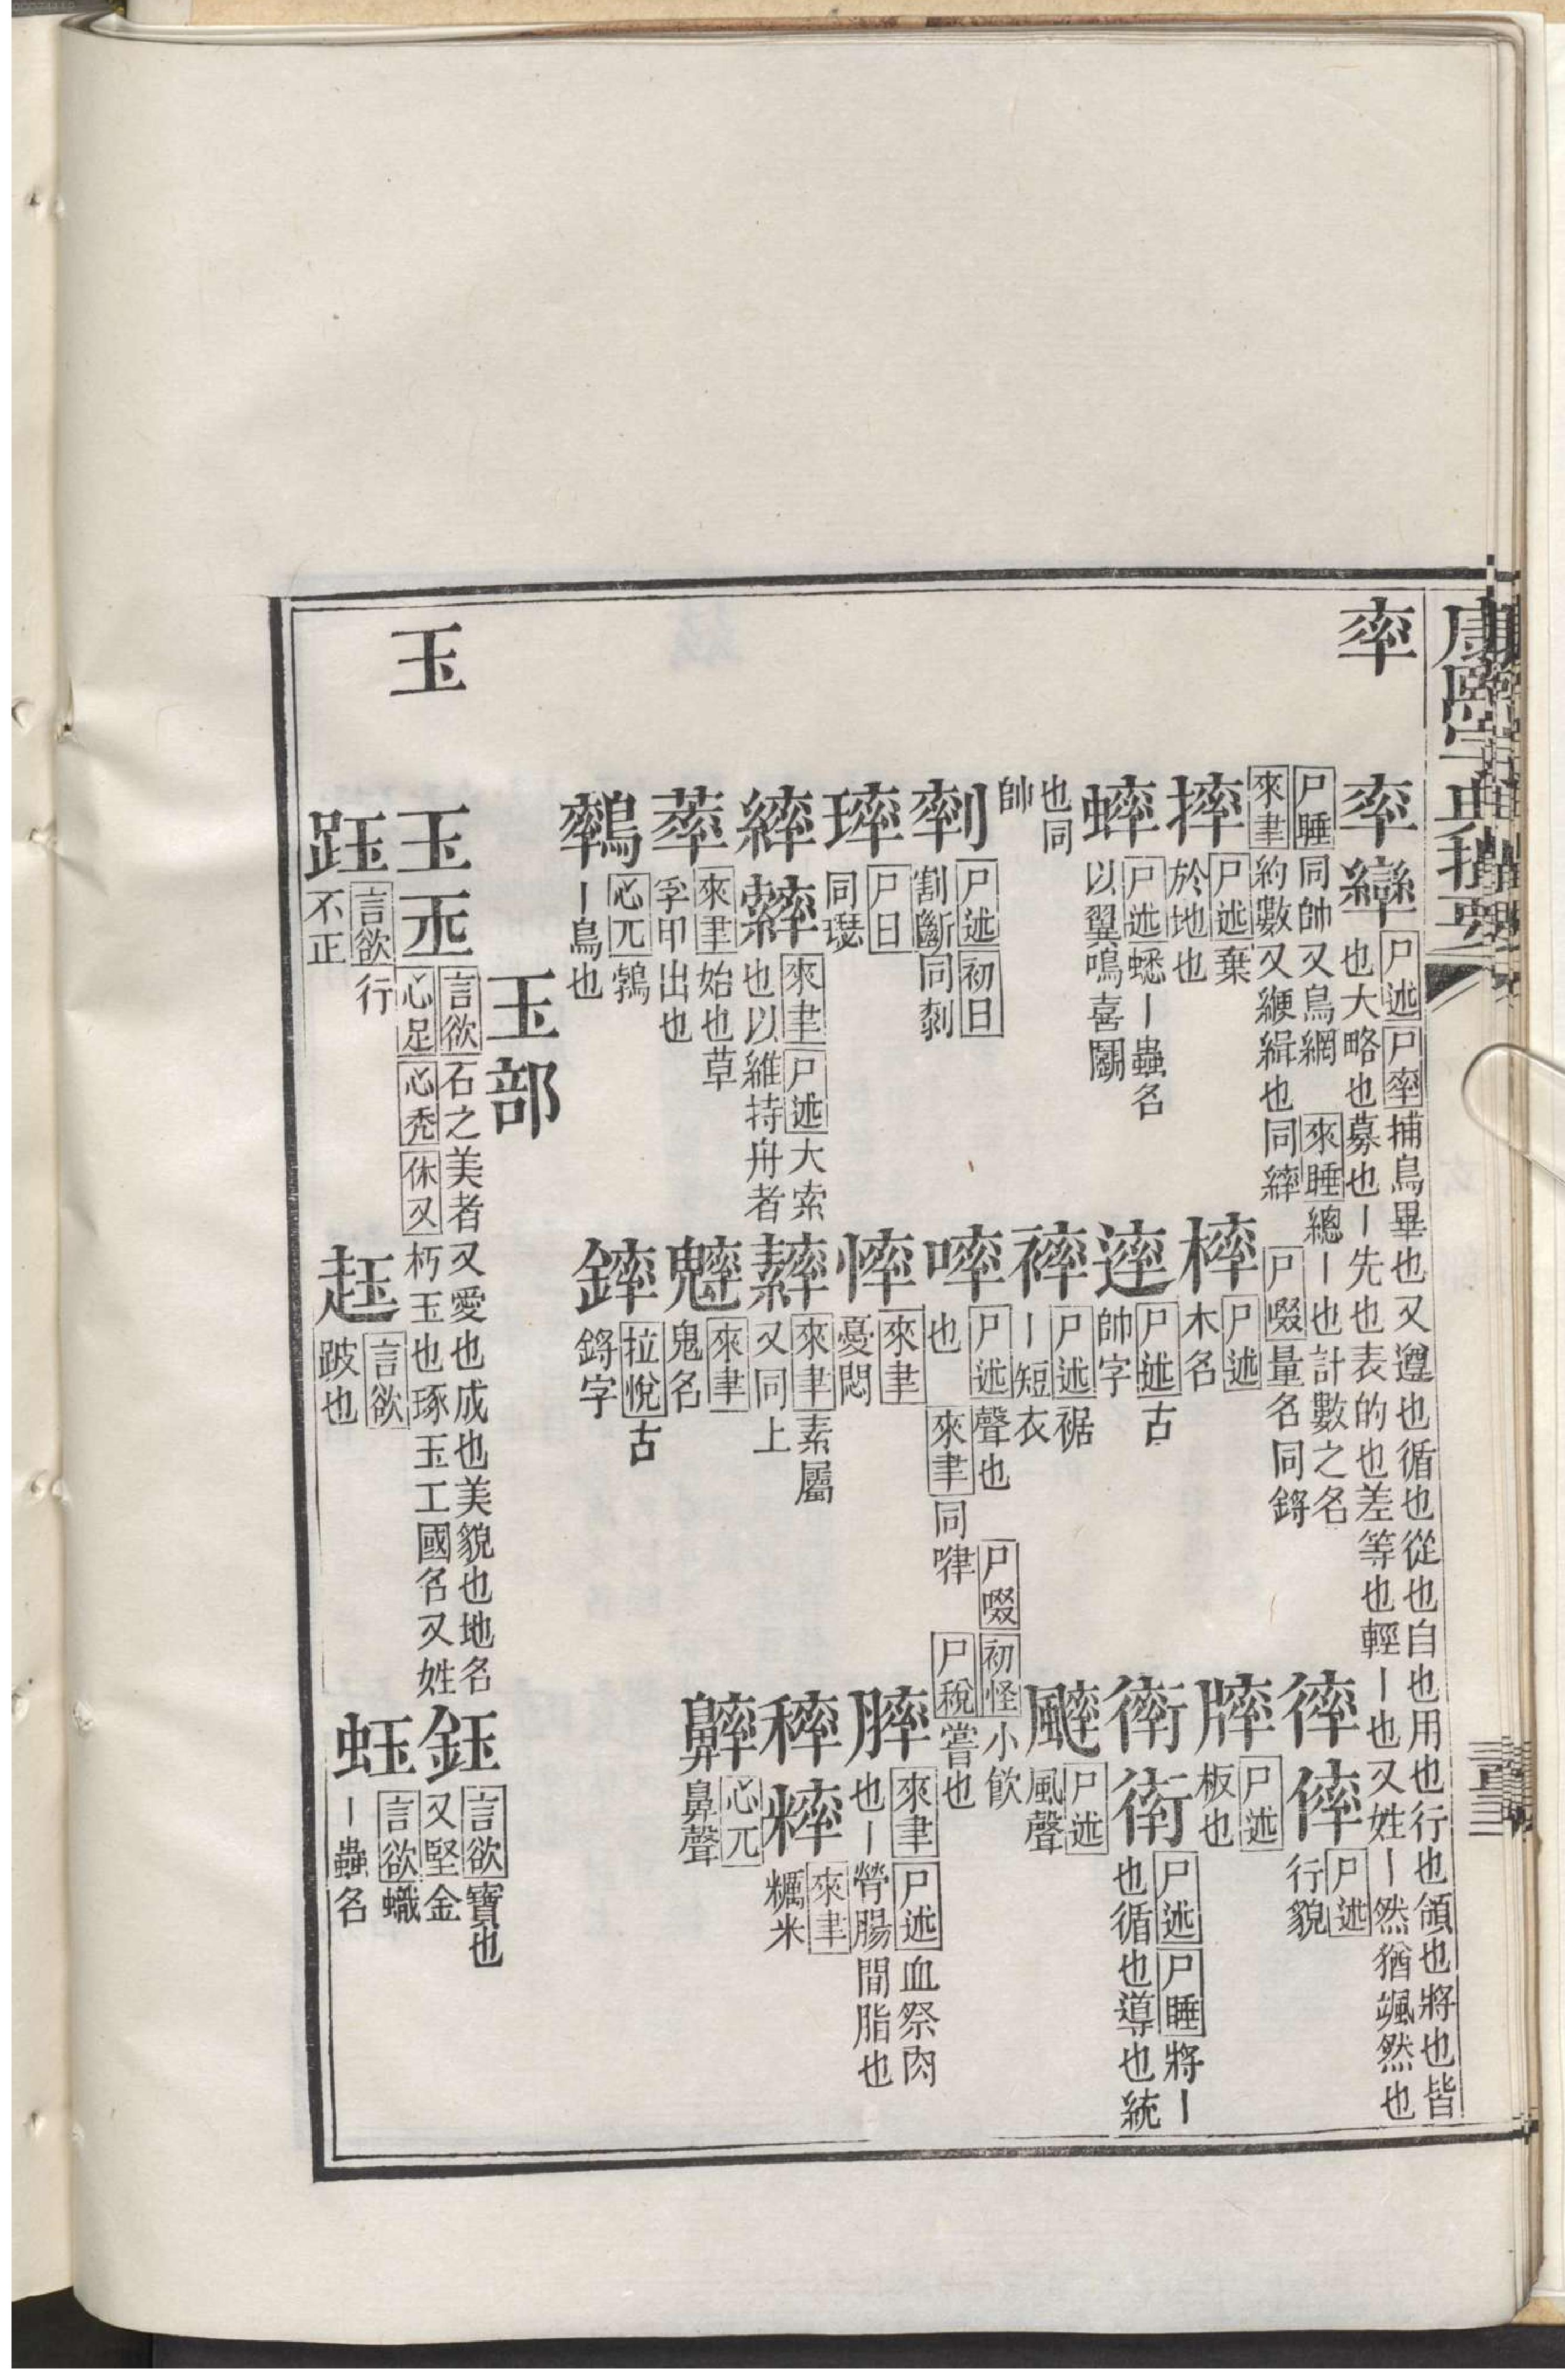 康熙字典撮要
率
率 𤜵 尸述 尸率 捕鳥畢也又遵也循也從也自也用也行也頜也將也皆
也大略也募也丨先也表的也差等也輕丨也又姓丨然猶颯然也
尸睡 同帥又鳥網 來睡 總丨也計數之名
來聿 約數又緶緝也同繂 尸啜 量名同鋝
摔 尸述 棄
於地也
蟀 尸述 蟋丨蟲名
以翼鳴喜鬭
榫 尸述
木名
達 尸述 古
帥字
䘹 尸述 裾
丨短衣
啐 尸述 聲也
也 來聿 同嘩
徫 㑼 尸述
行貌
牌 尸述
板也
衛 衒 尸述 尸睡 將丨
也循也導也統
也同
帥
䬍 尸述
風聲
尸啜 初怪 小飲
尸稅 嘗也
剺 尸述 初日
割斷同剺
璱 尸日
同瑟
繂 䋖 來聿 尸述 大索
也以維持舟者
葎 來聿 始也草
孚甲出也
鷍 心兀 鶉
丨鳥也
㤜 來聿
憂悶
䔞 來聿 素屬
又同上
魆 來聿
鬼名
鏫 拉悅 古
鋝字
膟 來聿 尸述 血祭肉
也丨膋腸間脂也
稡 粹 來聿
糲米
齂 心兀
鼻聲
玉部
玉
玉 𠀗 言欲 石之美者又愛也成也美貌也地名
心足 心禿 休又 朽玉也琢玉工國名又姓
鈺 言欲 寶也
又堅金
跬 言欲 行
不正
趌 言欲
跛也
蚟 言欲 蠘
丨蟲名